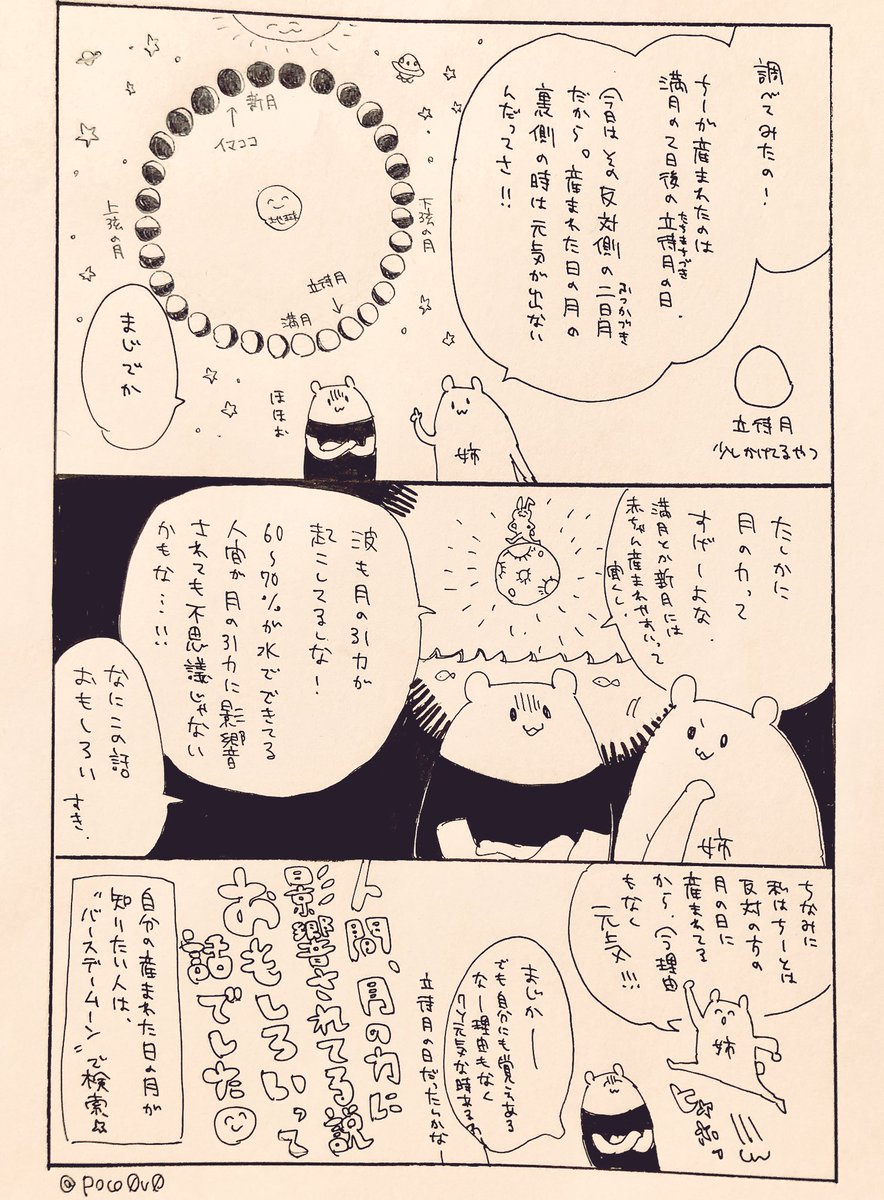 調べてみたの！
ちーが産まれたのは
満月の2日後の立待月の日．
たちまちづき
今日はその反対側の二日月
みつかづき
だから。産まれた日の月の
裏側の時は元気が出ない
んだってさ!!
立待月
少しかけてるやつ
新月
↑
イマココ
地球
下弦の月
上弦の月
立待月
満月
姉
ほほお
まじでか
たしかに
月の力って
すげーよな．
満月とか新月には
赤ちゃん産まれやすいって
聞くし．
姉
波も月の引力が
起こしてるしな！
60〜70%が水でできてる
人間が月の引力に影響
されても不思議じゃない
かもな…!!
なにこの話
おもしろい
すき．
ちなみに
私はちーとは
反対の方の
月の日に
産まれてる
から、今理由
もなく
元気!!!
姉
まじかー
でも自分にも覚えある
なー理由もなく
元気な時あるわ
立待月の日だったらかなー
人間、月の力に
影響されてる説
おもしろいって
話でした
自分の産まれた日の月が
知りたい人は、
"バースデームーン"で検索
@poco0v0